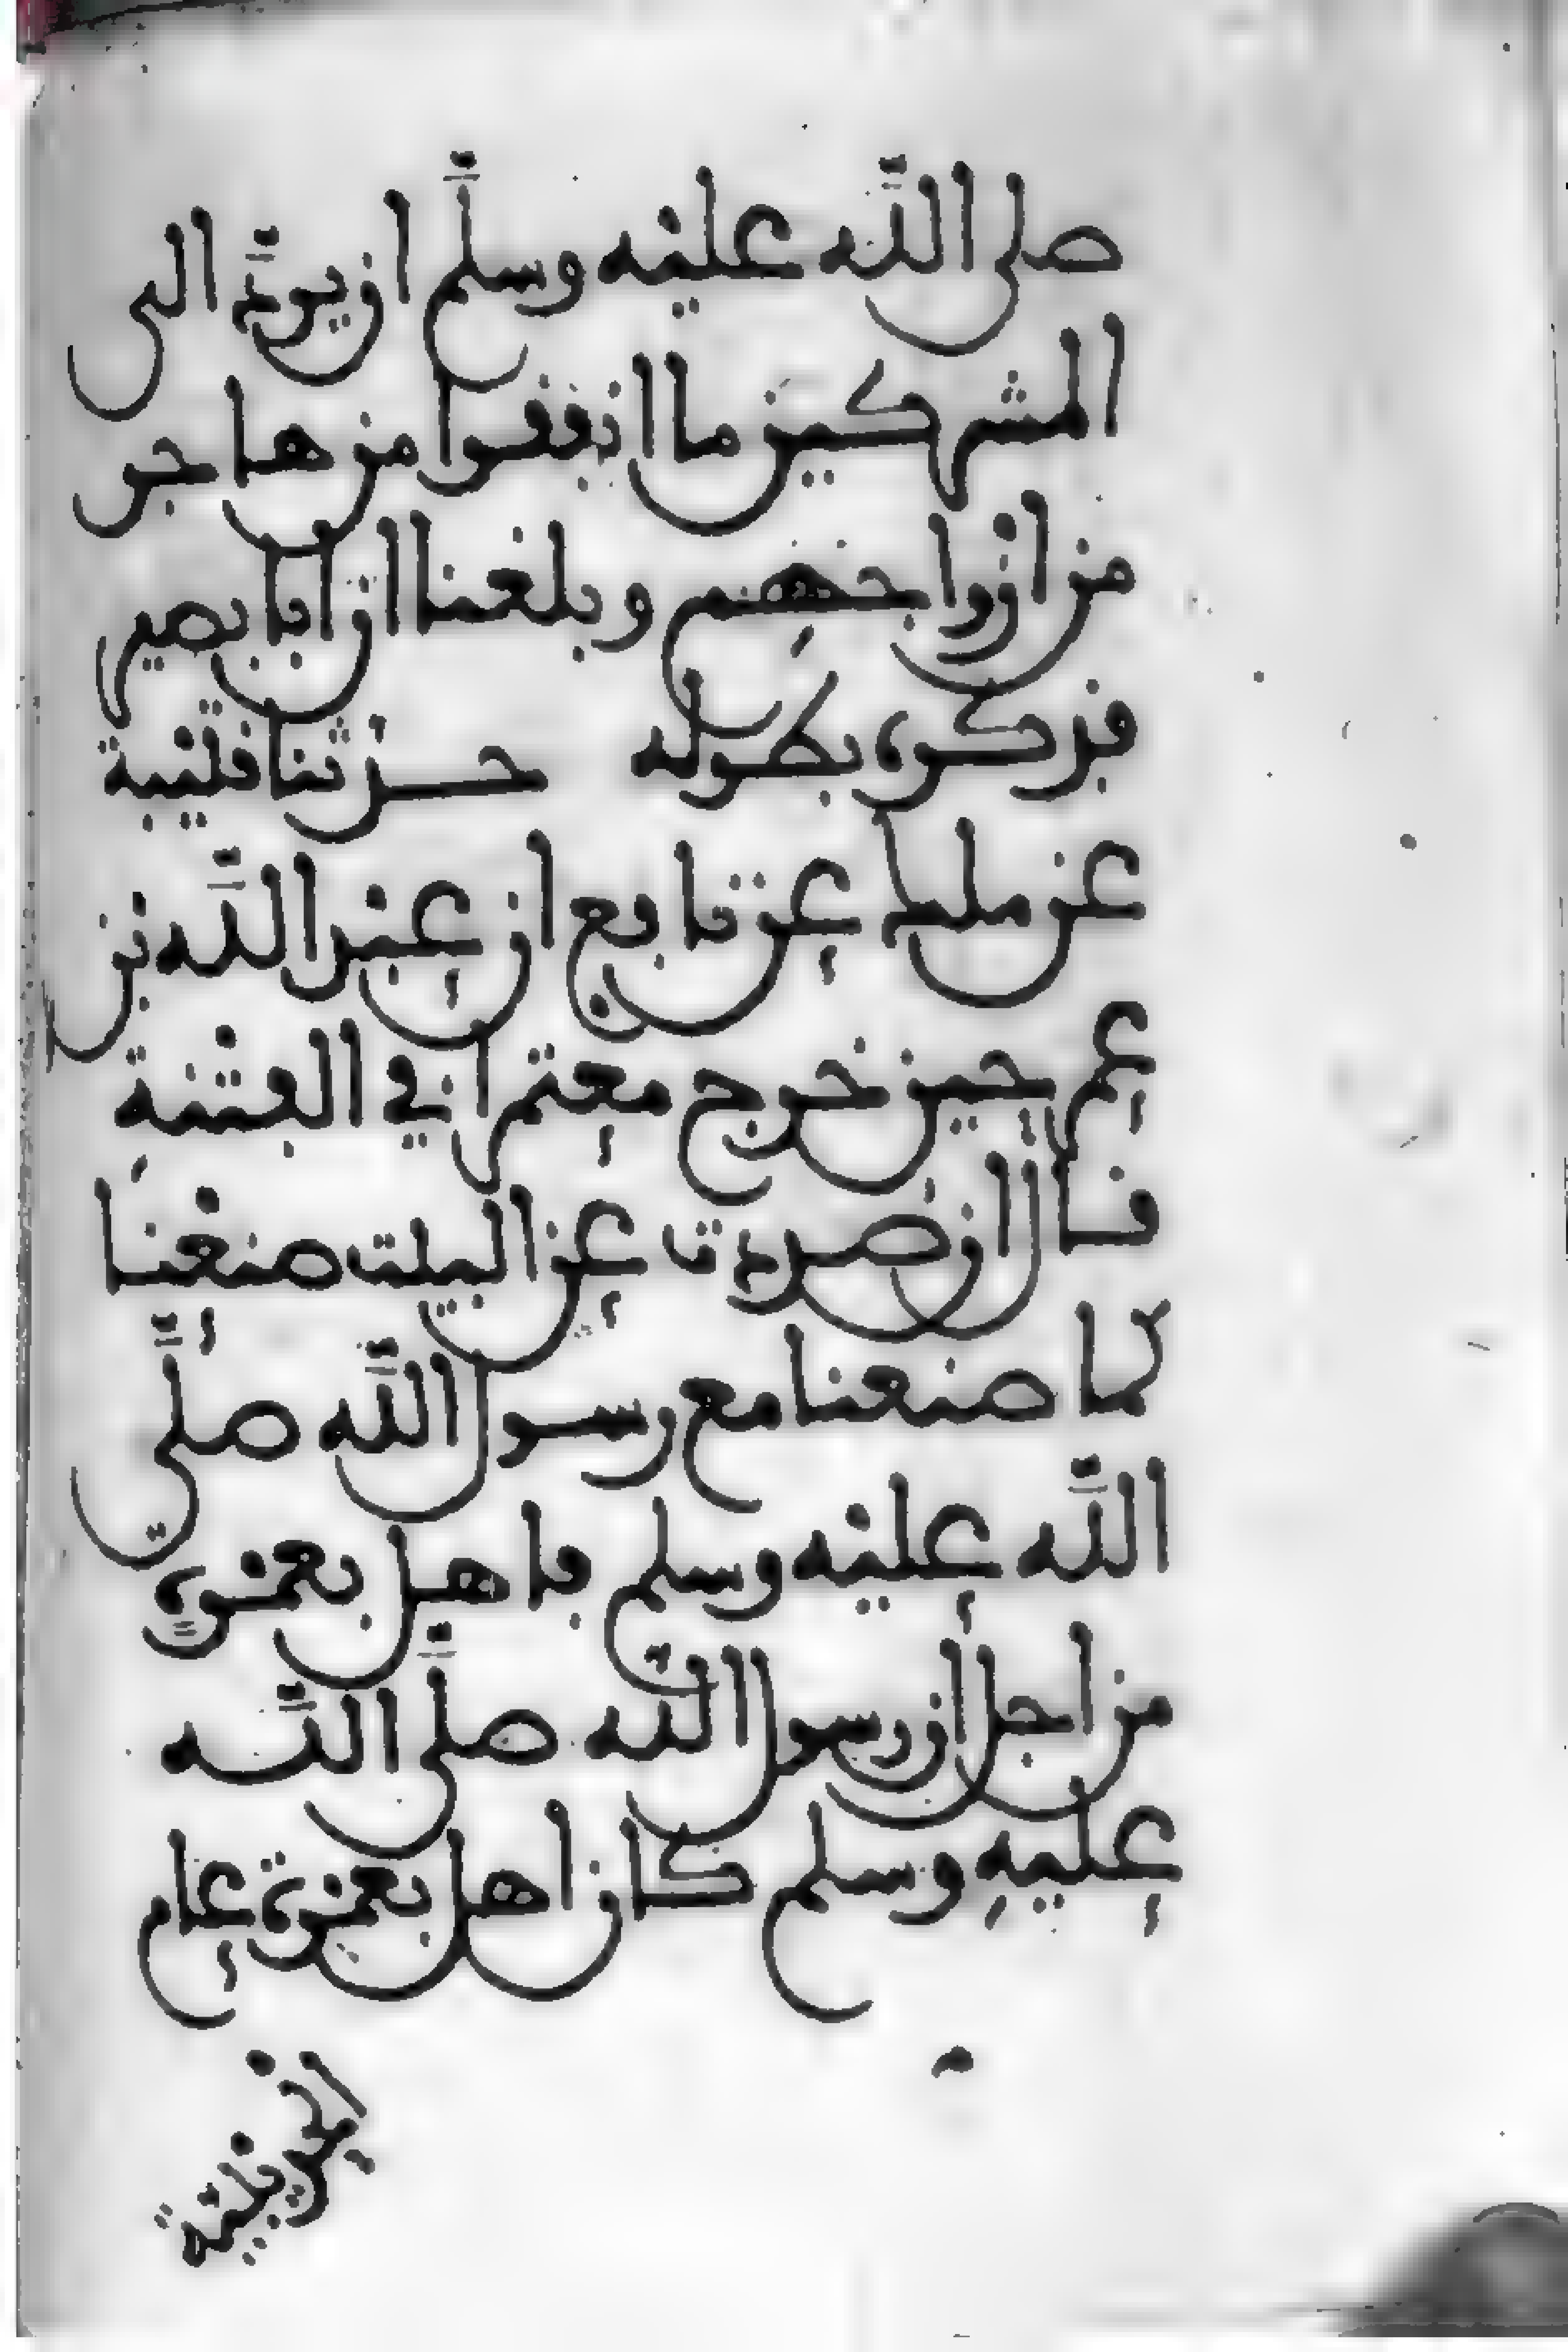 صلى الله عليه وسلم ان يودّ الى
المشركين ما انفقوا من هاجر
من ازواجهم وبلغنا ان ابا بصير
فذكره بطوله حدثنا قتيبة
عن ملك عن نابع ان عبد الله بن
عمر حين خرج معتمرا في الفتنة
فال ان صددت عن البيت صنعنا
كما صنعنا مع رسول الله صلّى
الله عليه وسلم فاهل بعمرة
من اجل ان رسول الله صلّى الله
عليه وسلم كان اهل بعمرة عام
الحديبية